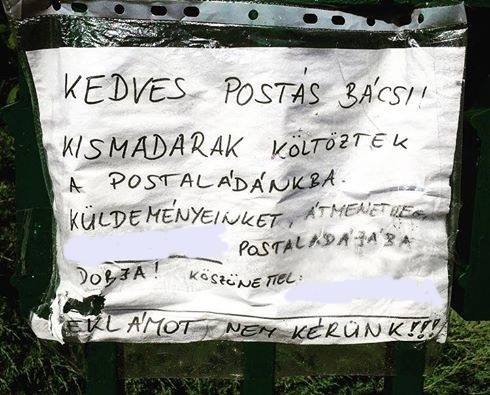 KEDVES POSTÁS BÁCSI!
KISMADARAK KÖLTÖZTEK
A POSTALÁDÁNKBA.
KÜLDEMÉNYEINKET, ÁTMENETILEG
POSTALÁDÁJÁBA
DOBJA! KÖSZÖNETTEL:
EKLÁMOT, NEM KÉRÜNK!!!